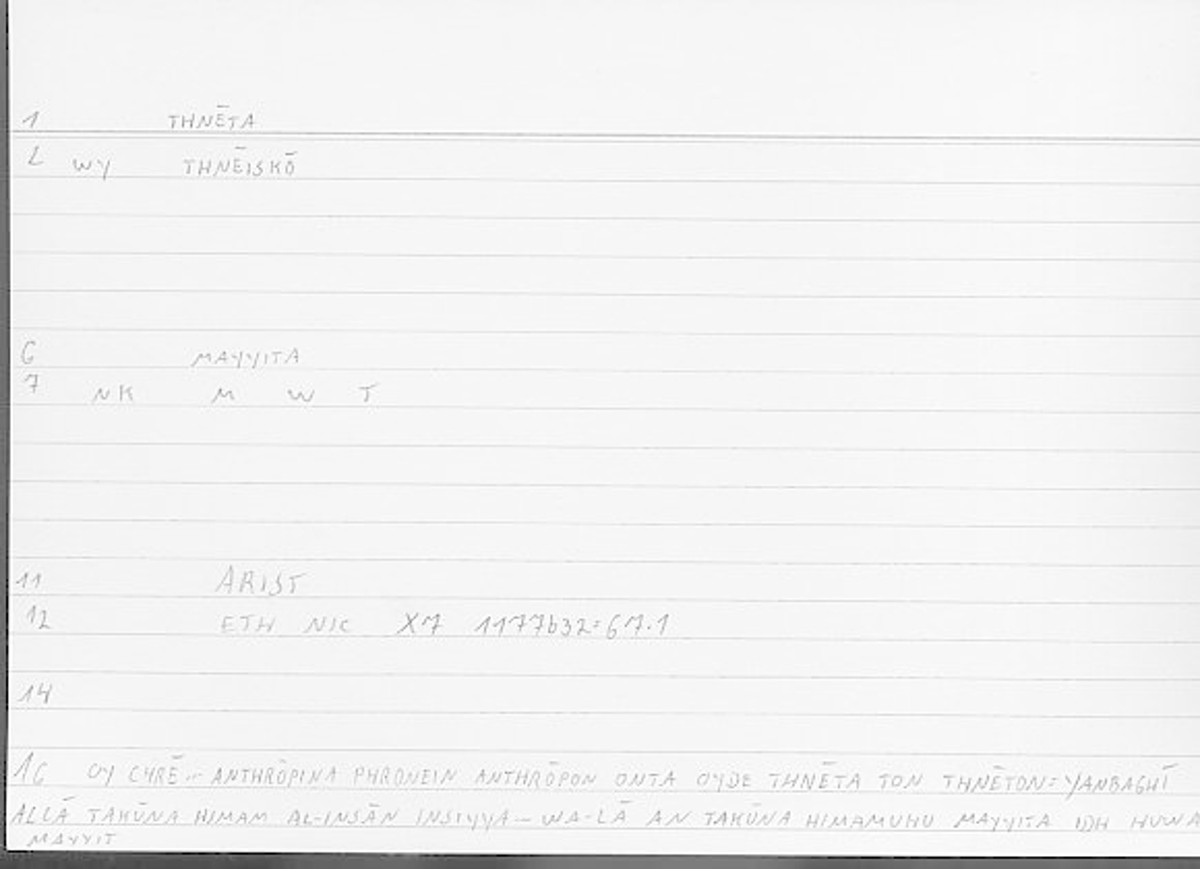 1 THNĒTA
2 WY THNĒISKŌ
6 MAYYITA
7 NK M W T
11 ARIST
12 ETH NIC X7 1177b32=67.1
14
16 OY CHRĒ... ANTHRŌPINA PHRONEIN ANTHRŌPON ONTA OYDE THNĒTA TON THNĒTON = YANBAGHĪ
ALLĀ TAKŪNA HIMAM AL-INSĀN INSIYYA — WA-LĀ AN TAKŪNA HIMAMUHU MAYYITA IDH HUWA
MAYYIT